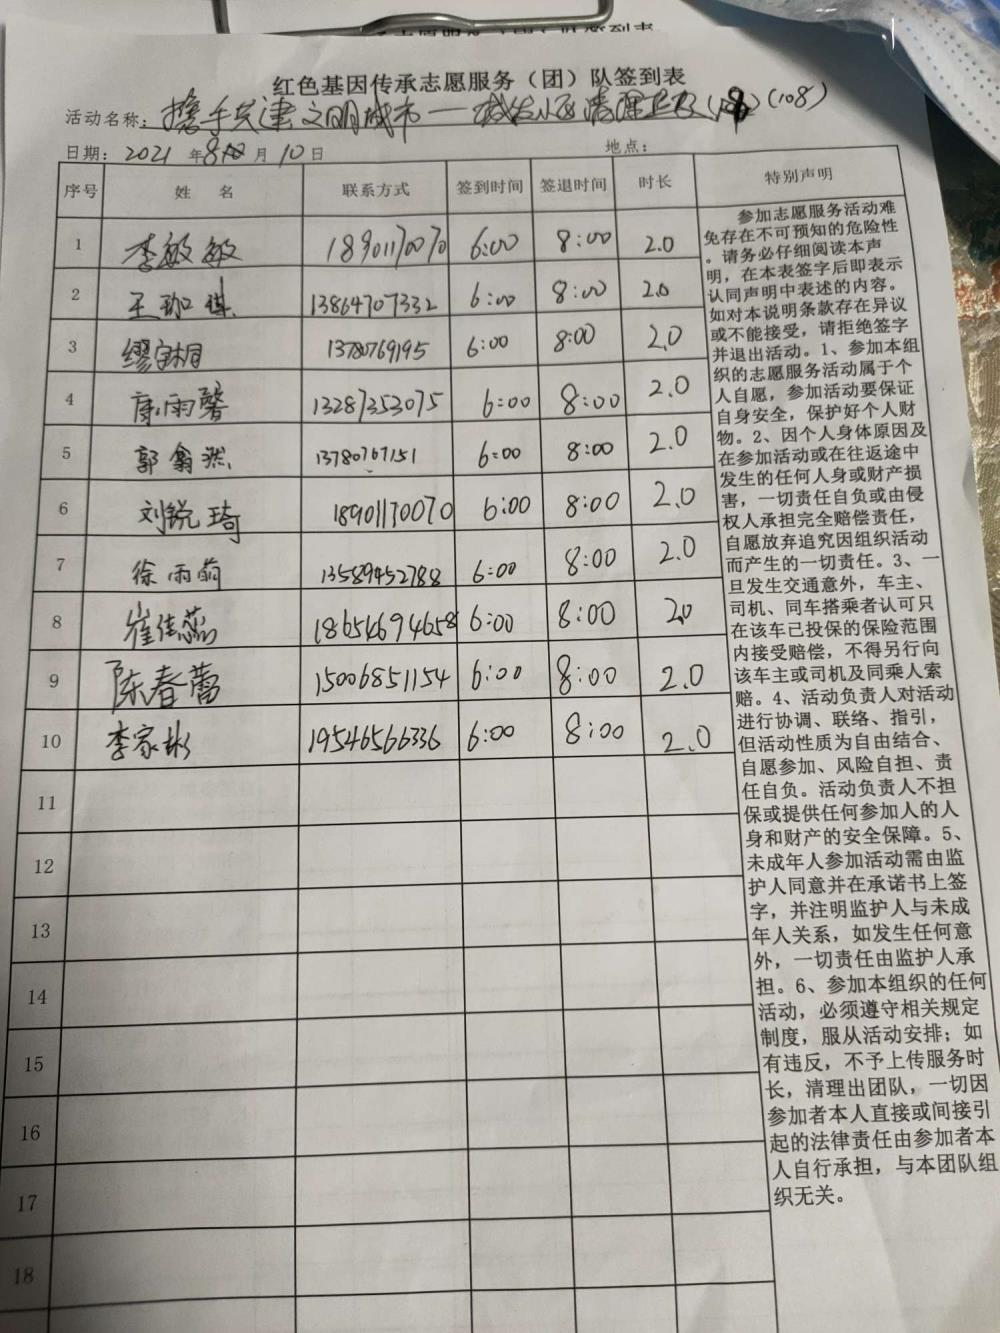 红色基因传承志愿服务（团）队签到表
活动名称：携手共建文明城市——小区清理(108)
日期：2021年8月10日 地点：
序号 姓名 联系方式 签到时间 签退时间 时长 特别声明
1 李敏敏 18901170070 6:00 8:00 2.0
2 王珈琪 13864707332 6:00 8:00 2.0
3 缪 1378769195 6:00 8:00 2.0
4 康雨馨 13287353075 6:00 8:00 2.0
5 郭翕然 13780767151 6:00 8:00 2.0
6 刘锐琦 18901170070 6:00 8:00 2.0
7 徐雨萌 13589452788 6:00 8:00 2.0
8 崔佳蕊 18654694658 6:00 8:00 2.0
9 陈春蕾 15006851154 6:00 8:00 2.0
10 李家彬 19546566336 6:00 8:00 2.0
11
12
13
14
15
16
17
18
参加志愿服务活动难
免存在不可预知的危险性
。请务必仔细阅读本声
明，在本表签字后即表示
认同声明中表述的内容。
如对本说明条款存在异议
或不能接受，请拒绝签字
并退出活动。1、参加本组
织的志愿服务活动属于个
人自愿，参加活动要保证
自身安全，保护好个人财
物。2、因个人身体原因及
在参加活动或在往返途中
发生的任何人身或财产损
害，一切责任自负或由侵
权人承担完全赔偿责任，
自愿放弃追究因组织活动
而产生的一切责任。3、一
旦发生交通意外，车主、
司机、同车搭乘者认可只
在该车已投保的保险范围
内接受赔偿，不得另行向
该车主或司机及同乘人索
赔。4、活动负责人对活动
进行协调、联络、指引，
但活动性质为自由结合、
自愿参加、风险自担、责
任自负。活动负责人不担
保或提供任何参加人的人
身和财产的安全保障。5、
未成年人参加活动需由监
护人同意并在承诺书上签
字，并注明监护人与未成
年人关系，如发生任何意
外，一切责任由监护人承
担。6、参加本组织的任何
活动，必须遵守相关规定
制度，服从活动安排；如
有违反，不予上传服务时
长，清理出团队，一切因
参加者本人直接或间接引
起的法律责任由参加者本
人自行承担，与本团队组
织无关。